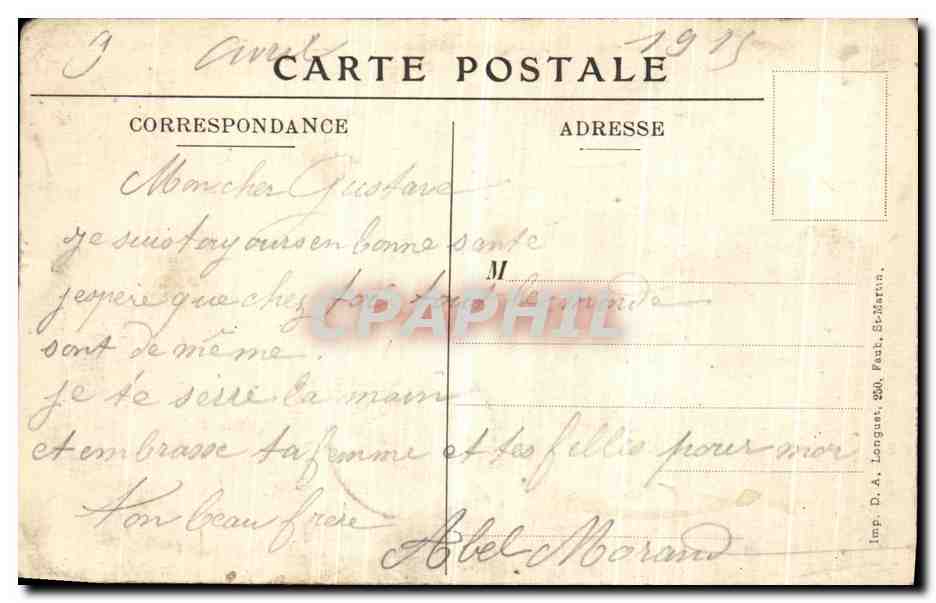 9 avril 1915
CARTE POSTALE
CORRESPONDANCE
ADRESSE
Mon cher Gustave
je suis toujours en bonne santé
M
j'espere que chez toi tout le monde
sont de même.
je te serre la main
et embrasse ta femme et tes filles pour moi
Ton beau frere
Abel Morand
Imp. D. A. Longuet, 250, Faub. St-Martin.
CPAPHIL